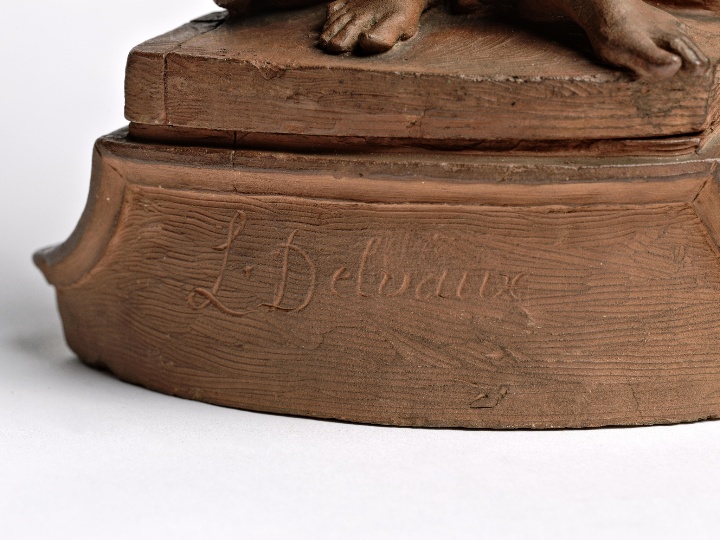 L. Delvaux